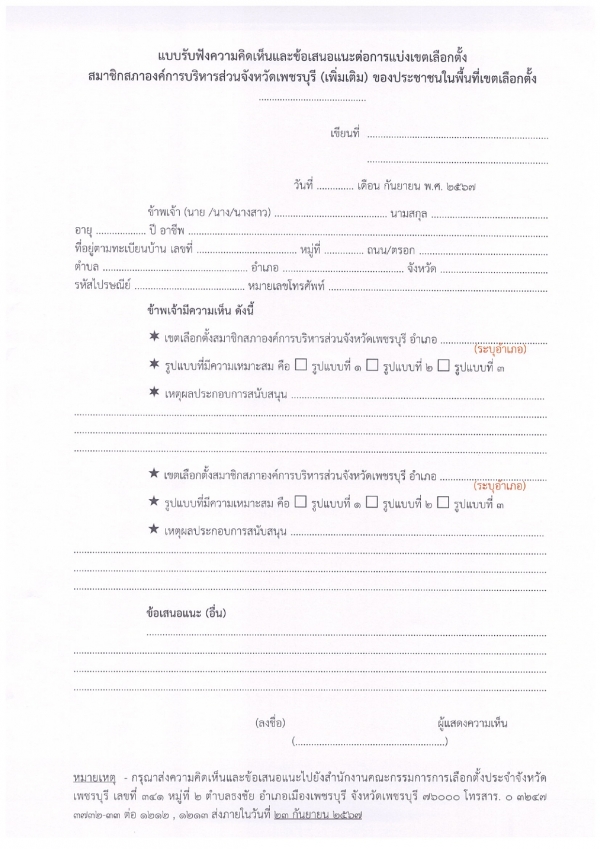 แบบรับฟังความคิดเห็นและข้อเสนอแนะต่อการแบ่งเขตเลือกตั้ง
สมาชิกสภาองค์การบริหารส่วนจังหวัดเพชรบุรี (เพิ่มเติม) ของประชาชนในพื้นที่เขตเลือกตั้ง
........................................
เขียนที่ ................................................................
................................................................
วันที่ .............. เดือน กันยายน พ.ศ. ๒๕๖๗
ข้าพเจ้า (นาย /นาง/นางสาว) ........................................ นามสกุล ........................................
อายุ .................. ปี อาชีพ ................................................................
ที่อยู่ตามทะเบียนบ้าน เลขที่ .................................... หมู่ที่ .............. ถนน/ตรอก ........................................
ตำบล .................................................... อำเภอ ............................................ จังหวัด ........................................
รหัสไปรษณีย์ ........................................ หมายเลขโทรศัพท์ ................................................................
ข้าพเจ้ามีความเห็น ดังนี้
★ เขตเลือกตั้งสมาชิกสภาองค์การบริหารส่วนจังหวัดเพชรบุรี อำเภอ ........................................
(ระบุอำเภอ)
★ รูปแบบที่มีความเหมาะสม คือ ☐ รูปแบบที่ ๑ ☐ รูปแบบที่ ๒ ☐ รูปแบบที่ ๓
★ เหตุผลประกอบการสนับสนุน ................................................................
................................................................
................................................................
................................................................
★ เขตเลือกตั้งสมาชิกสภาองค์การบริหารส่วนจังหวัดเพชรบุรี อำเภอ ........................................
(ระบุอำเภอ)
★ รูปแบบที่มีความเหมาะสม คือ ☐ รูปแบบที่ ๑ ☐ รูปแบบที่ ๒ ☐ รูปแบบที่ ๓
★ เหตุผลประกอบการสนับสนุน ................................................................
................................................................
................................................................
................................................................
ข้อเสนอแนะ (อื่น)
................................................................
................................................................
................................................................
................................................................
(ลงชื่อ) ผู้แสดงความเห็น
(....................................................)
หมายเหตุ - กรุณาส่งความคิดเห็นและข้อเสนอแนะไปยังสำนักงานคณะกรรมการการเลือกตั้งประจำจังหวัด
เพชรบุรี เลขที่ ๓๔๑ หมู่ที่ ๒ ตำบลธงชัย อำเภอเมืองเพชรบุรี จังหวัดเพชรบุรี ๗๖๐๐๐ โทรสาร. ๐ ๓๒๔๗
๓๗๓๒-๓๓ ต่อ ๑๒๑๒ , ๑๒๑๓ ส่งภายในวันที่ ๒๓ กันยายน ๒๕๖๗